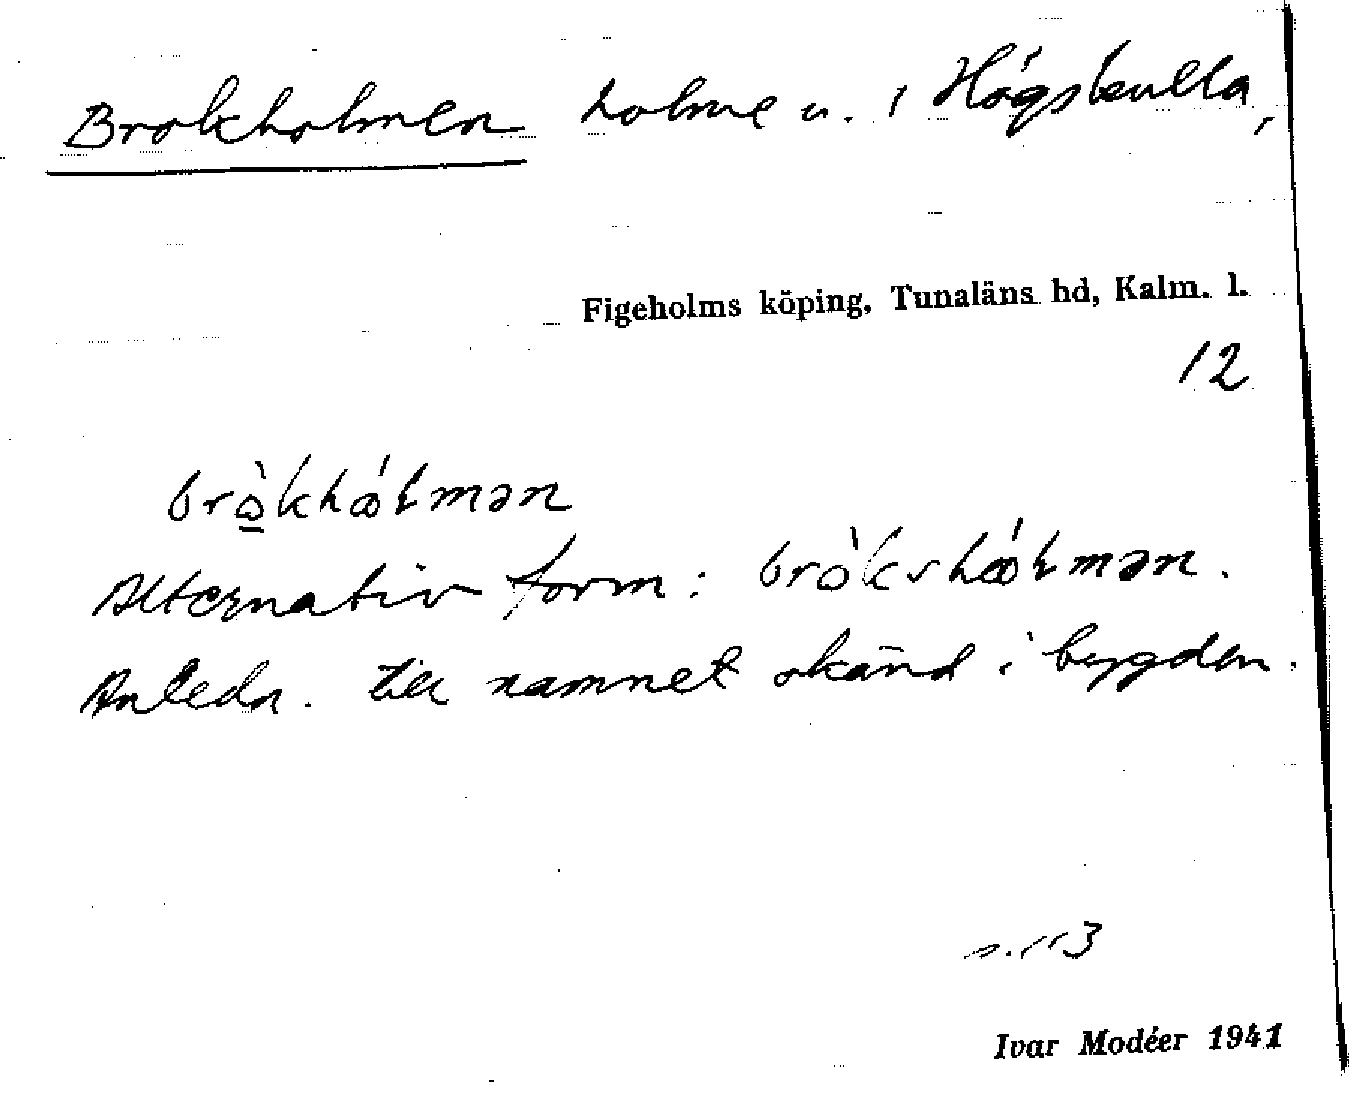 Brokholmen holme u. i Högskulla,
Figeholms köping, Tunaläns hd, Kalm. l.
12
Alternativ form:
Anledn. till namnet okänd i bygden.
s. 113
Ivar Modéer 1941